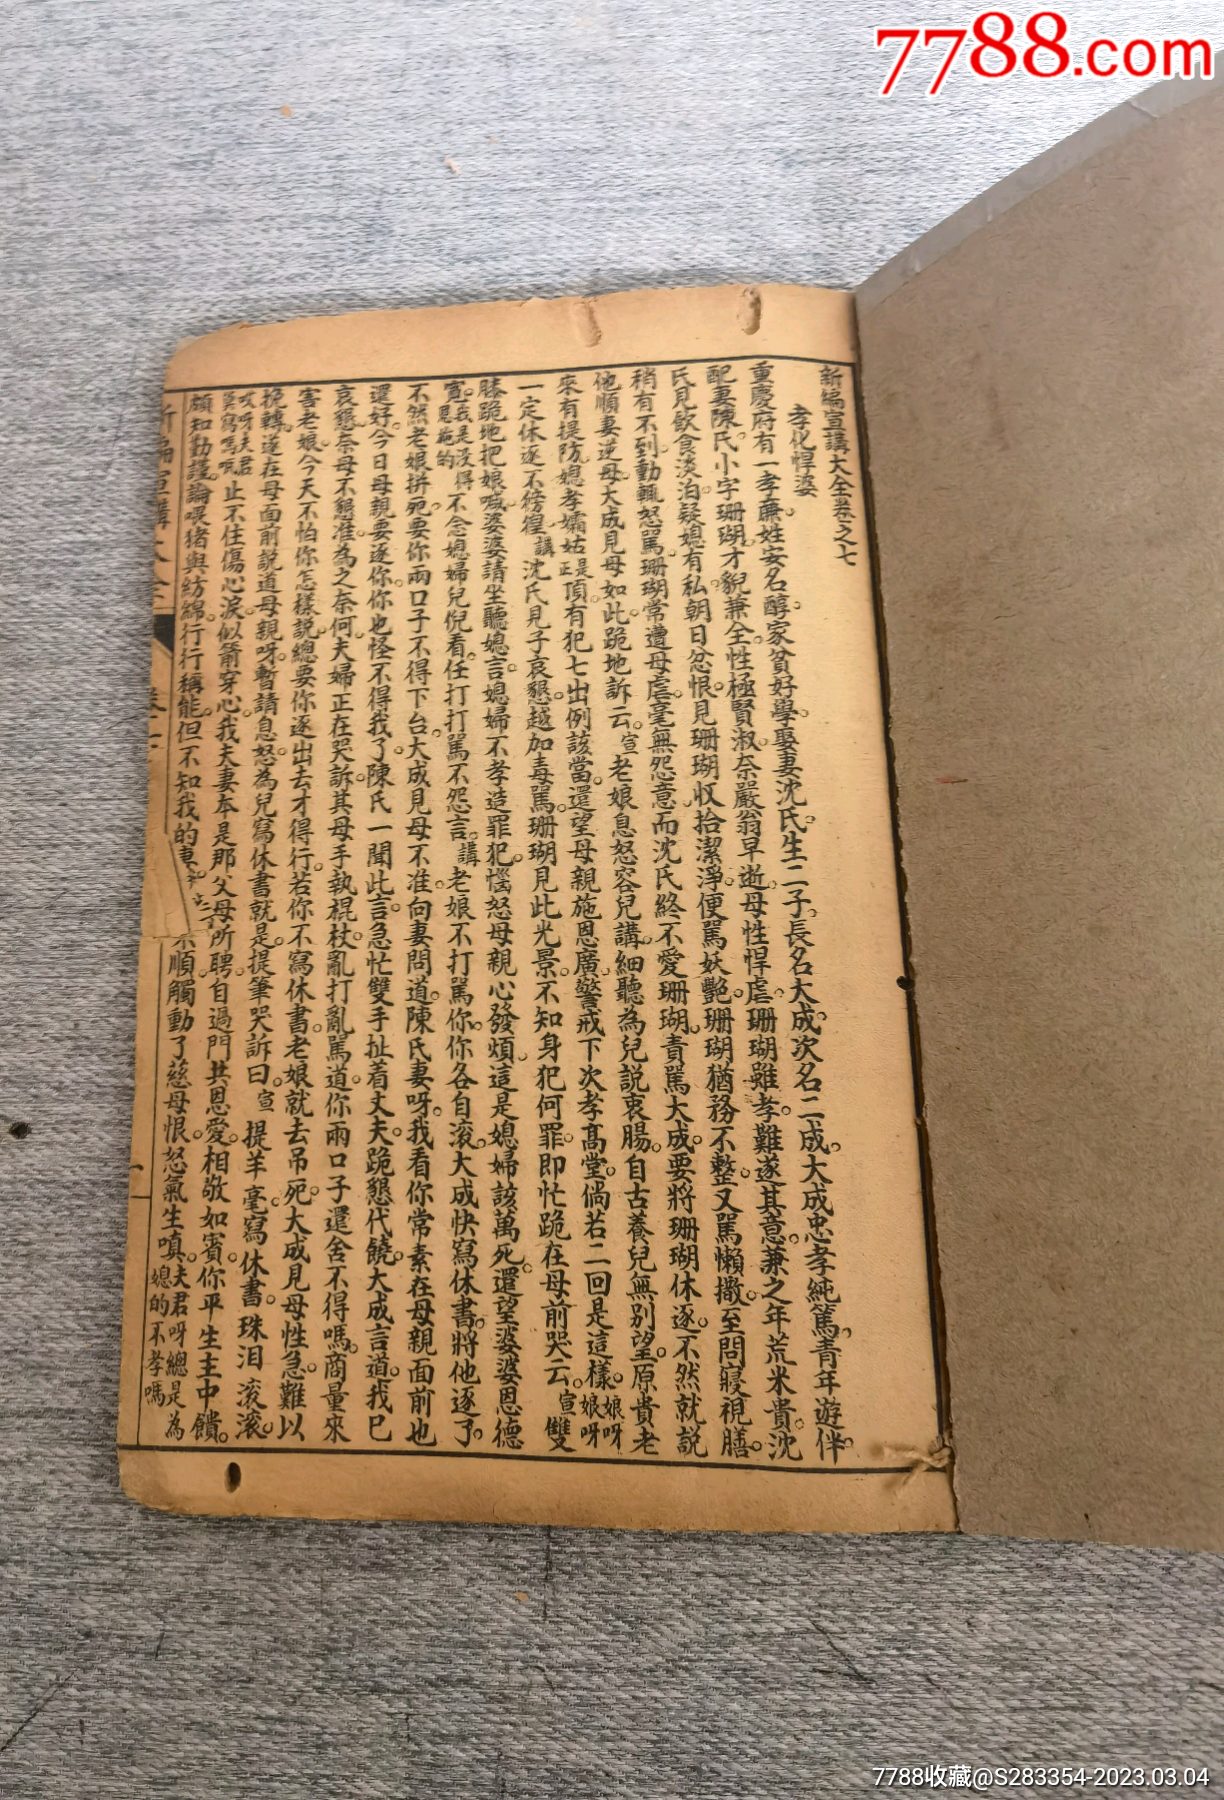 7788.com
新編宣講大全卷之七
孝化悍婆
重慶府有一孝廉姓安名醇家貧好學娶妻沈氏生二子長名大成次名二成大成忠孝純篤青年遊伴
配妻陳氏小字珊瑚才貌兼全性極賢淑奈嚴翁早逝母性悍虐珊瑚雖孝難遂其意兼之年荒米貴沈
氏見飲食淡泊疑媳有私朝日忿恨見珊瑚收拾潔淨便罵妖艷珊瑚猶務不整又罵懶撒至問寢視膳
稍有不到動輒怒罵珊瑚常遭母虐毫無怨意而沈氏終不愛珊瑚責罵大成要將珊瑚休逐不然就說
他順妻逆母大成見母如此跪地訴云宣老娘息怒容兒講細聽為兒說衷腸自古養兒無別望原貴老
來有提防媳孝孀姑正是頂有犯七出例該當還望母親施恩廣警戒下次孝高堂倘若二回是這樣娘呀娘呀
一定休逐不徬徨講沈氏見子哀懇越加毒罵珊瑚見此光景不知身犯何罪即忙跪在母前哭云宣雙
膝跪地把娘喊婆婆請坐聽媳言媳婦不孝造罪犯惱怒母親心發煩這是媳婦該萬死還望婆婆恩德
寬我是沒得恩施的不念媳婦兒倪看任打打罵不怨言講老娘不打罵你你各自滾大成快寫休書將他逐了
不然老娘拼死要你兩口子不得下台大成見母不准向妻問道陳氏妻呀我看你常素在母親面前也
還好今日母親要逐你你也怪不得我了陳氏一聞此言急忙雙手扯着丈夫跪懇代饒大成言道我已
哀懇奈母不懇准為之奈何夫婦正在哭訴其母手執棍杖亂打亂罵道你兩口子還舍不得嗎商量來
害老娘今天不怕你怎樣說總要你逐出去才得行若你不寫休書老娘就去吊死大成見母性急難以
挽轉遂在母面前說道母親呀暫請息怒為兒寫休書就是提筆哭訴曰宣提羊毫寫休書珠泪滾滾
哎呀夫君止不住傷心淚似箭穿心我夫妻本是那父母所聘自過門共恩愛相敬如賓你平生主中饋
頗知勤謹論喂猪與紡綿行行稱能但不知我的順觸動了慈母恨怒氣生嗔夫君呀總是為媳的不孝嗎
7788收藏@S283354-2023.03.04